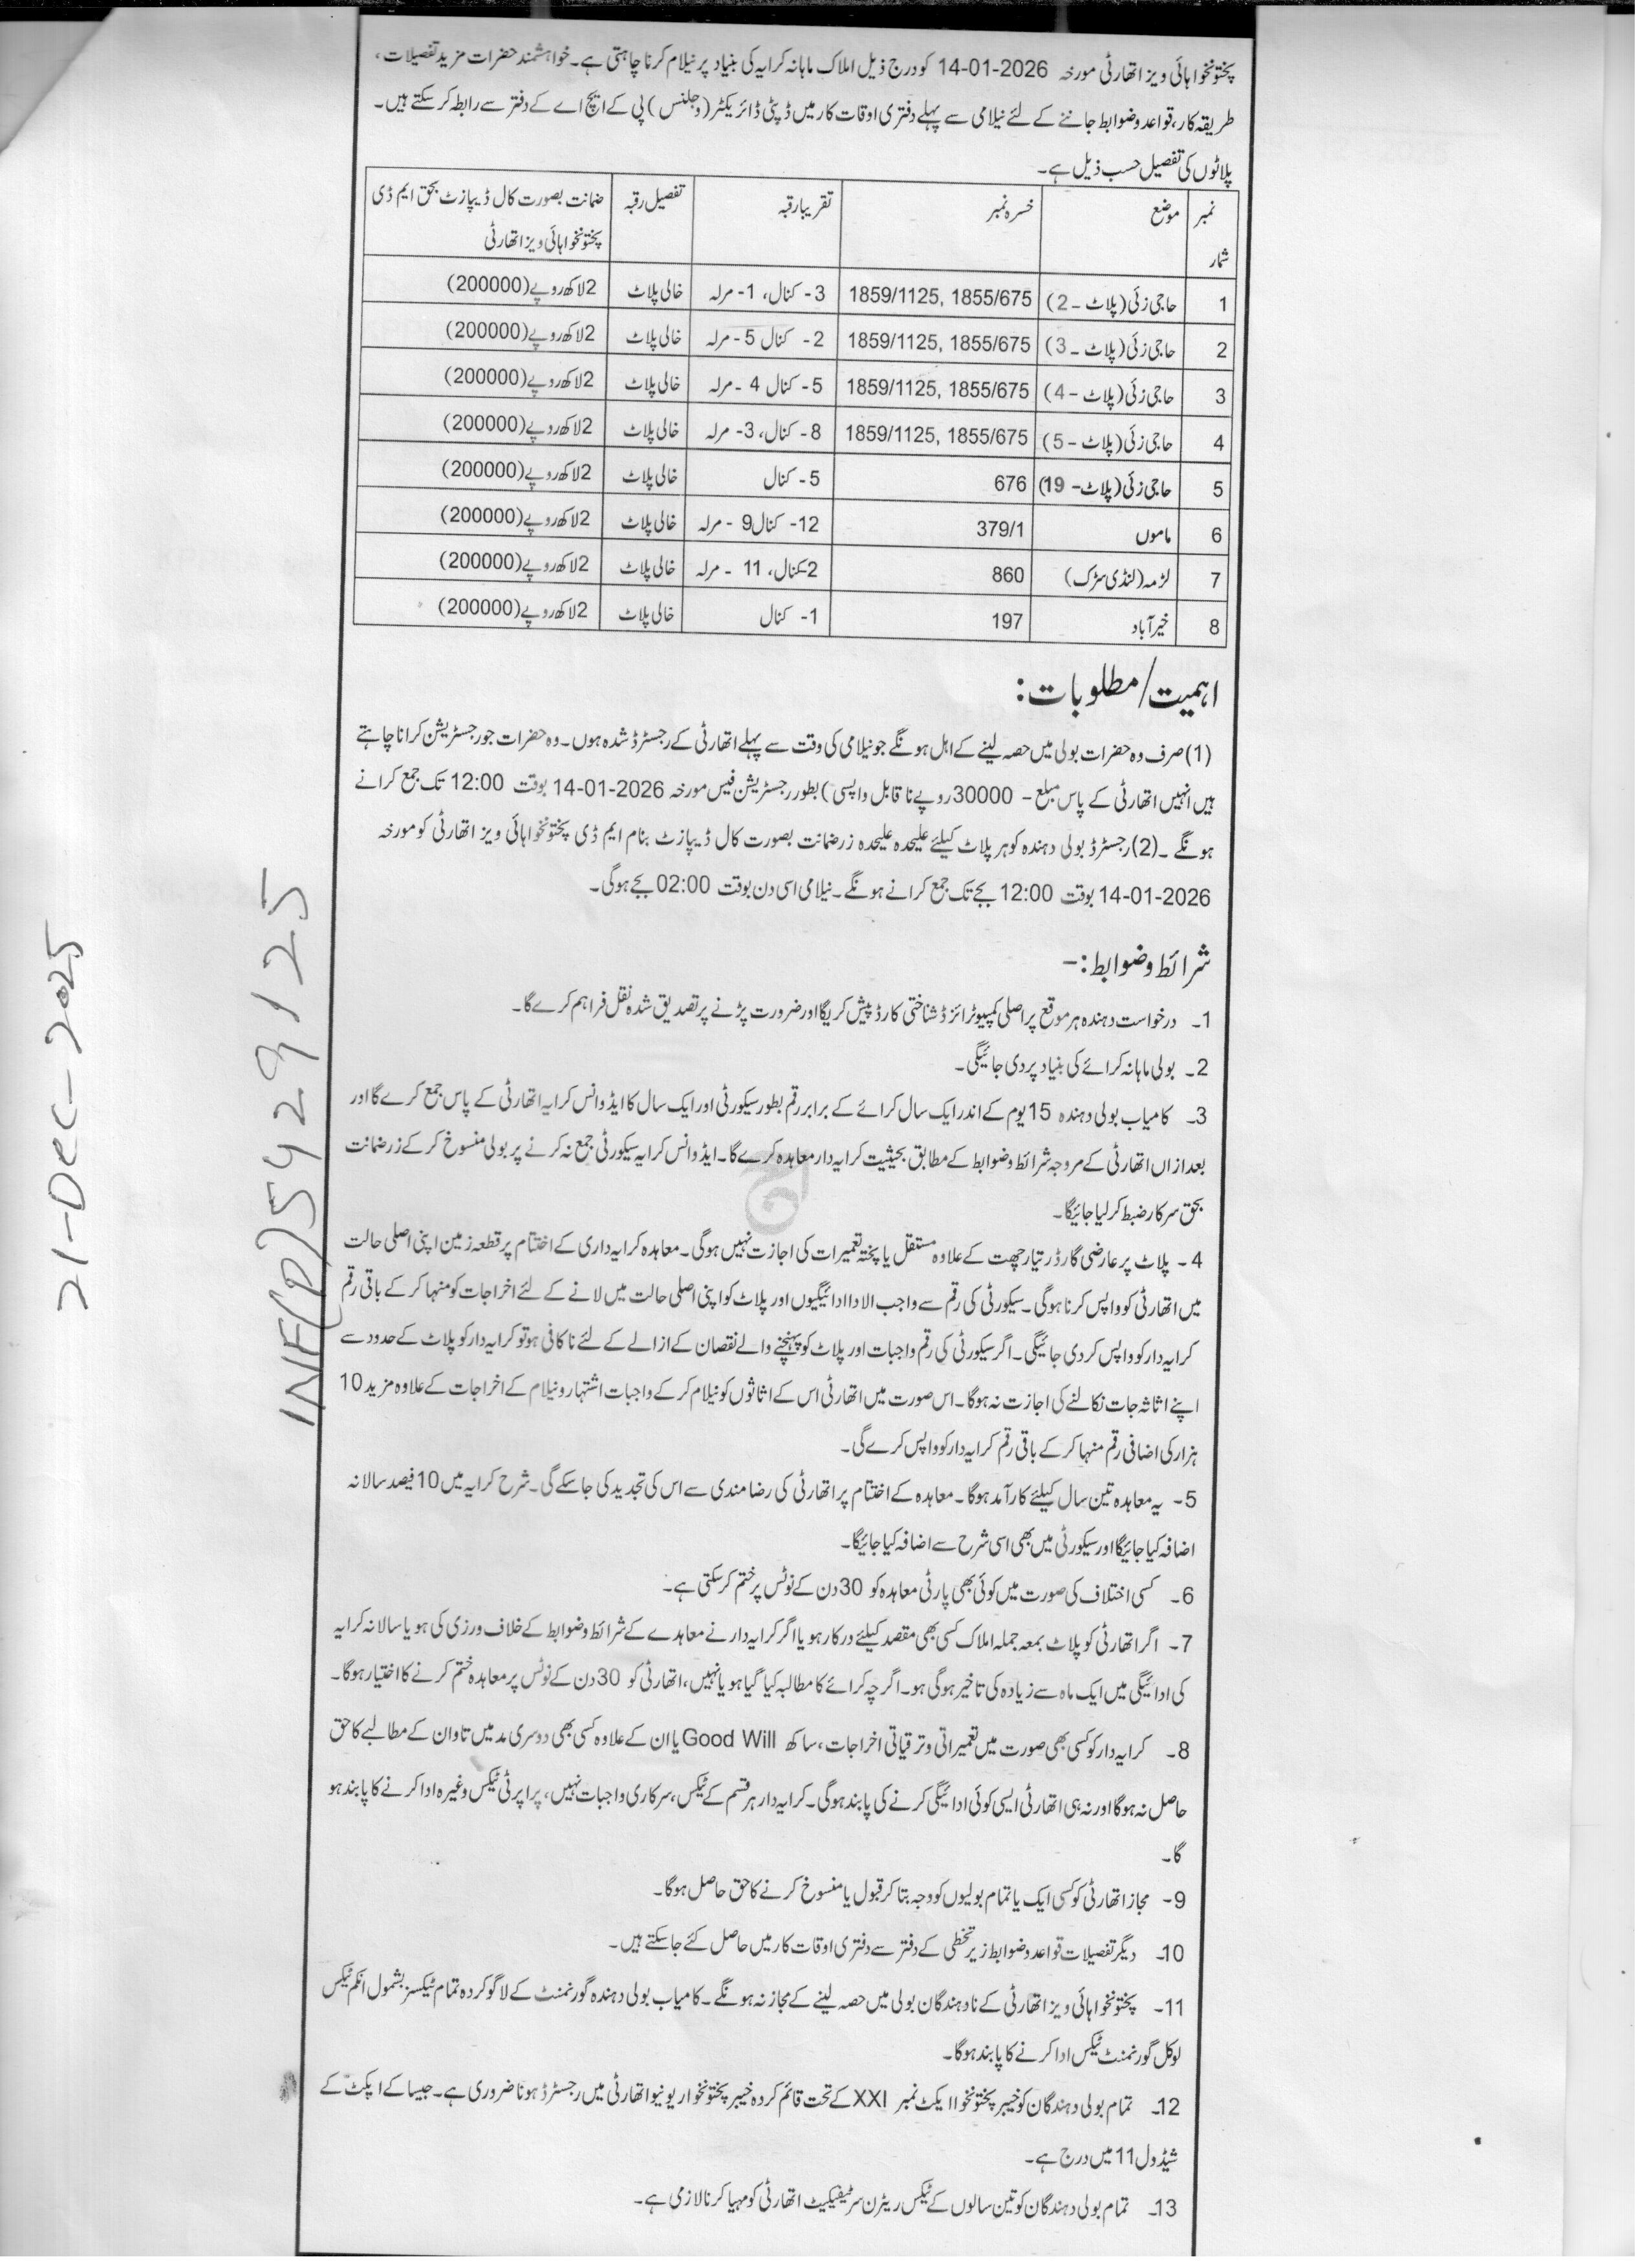 پختونخوا ہائی ویز اتھارٹی مورخہ 2026-01-14 کو درج ذیل املاک ماہانہ کرایہ کی بنیاد پر نیلام کرنا چاہتی ہے۔ خواہشمند حضرات مزید تفصیلات،
طریقہ کار، قواعد وضوابط جاننے کے لئے نیلامی سے پہلے دفتری اوقات کار میں ڈپٹی ڈائریکٹر (وجلنس) پی کے ایچ اے کے دفتر سے رابطہ کر سکتے ہیں۔
پلاٹوں کی تفصیل حسب ذیل ہے۔
نمبر شمار موضع خسرہ نمبر تقریبا رقبہ تفصیل رقبہ ضمانت بصورت کال ڈیپازٹ بحق ایم ڈی پختونخوا ہائی ویز اتھارٹی
1 حاجی زئی (پلاٹ - 2) 1859/1125, 1855/675 3- کنال، 1- مرلہ خالی پلاٹ 2 لاکھ روپے (200000)
2 حاجی زئی (پلاٹ - 3) 1859/1125, 1855/675 2- کنال 5- مرلہ خالی پلاٹ 2 لاکھ روپے (200000)
3 حاجی زئی (پلاٹ - 4) 1859/1125, 1855/675 5- کنال 4- مرلہ خالی پلاٹ 2 لاکھ روپے (200000)
4 حاجی زئی (پلاٹ - 5) 1859/1125, 1855/675 8- کنال، 3- مرلہ خالی پلاٹ 2 لاکھ روپے (200000)
5 حاجی زئی (پلاٹ - 19) 676 5- کنال خالی پلاٹ 2 لاکھ روپے (200000)
6 ماموں 379/1 12- کنال 9- مرلہ خالی پلاٹ 2 لاکھ روپے (200000)
7 لڑمہ (لنڈی سڑک) 860 2 کنال، 11 - مرلہ خالی پلاٹ 2 لاکھ روپے (200000)
8 خیر آباد 197 1- کنال خالی پلاٹ 2 لاکھ روپے (200000)
اہمیت/مطلوبات:
(1) صرف وہ حضرات بولی میں حصہ لینے کے اہل ہونگے جو نیلامی کی وقت سے پہلے اتھارٹی کے رجسٹرڈ شدہ ہوں۔ وہ حضرات جو رجسٹریشن کرانا چاہتے
ہیں انہیں اتھارٹی کے پاس مبلغ - 30000 روپے نا قابل واپسی) بطور رجسٹریشن فیس مورخہ 2026-01-14 بوقت 12:00 تک جمع کرانے
ہونگے۔ (2) رجسٹرڈ بولی دہندہ کو ہر پلاٹ کیلئے علیحدہ علیحدہ زرضمانت بصورت کال ڈیپازٹ بنام ایم ڈی پختونخوا ہائی ویز اتھارٹی کو مورخہ
14-01-2026 بوقت 12:00 بجے تک جمع کرانے ہونگے۔ نیلامی اسی دن بوقت 02:00 بجے ہوگی۔
شرائط وضوابط:-
1۔ درخواست دہندہ ہر موقع پر اصلی کمپیوٹرائزڈ شناختی کارڈ پیش کریگا اور ضرورت پڑنے پر تصدیق شدہ نقل فراہم کرے گا۔
2۔ بولی ماہانہ کرائے کی بنیاد پر دی جائیگی۔
3۔ کامیاب بولی دہندہ 15 یوم کے اندر ایک سال کرائے کے برابر رقم بطور سیکورٹی اور ایک سال کا ایڈوانس کرایہ اتھارٹی کے پاس جمع کرے گا اور
بعد ازاں اتھارٹی کے مروجہ شرائط وضوابط کے مطابق بحیثیت کرایہ دار معاہدہ کرے گا۔ ایڈوانس کرایہ سیکورٹی جمع نہ کرنے پر بولی منسوخ کر کے زرضمانت
بحق سرکار ضبط کرلیا جائیگا۔
4۔ پلاٹ پر عارضی گارڈر تیار چھت کے علاوہ مستقل یا پختہ تعمیرات کی اجازت نہیں ہوگی۔ معاہدہ کرایہ داری کے اختتام پر قطعہ زمین اپنی اصلی حالت
میں اتھارٹی کو واپس کرنا ہوگی۔ سیکورٹی کی رقم سے واجب الادا ادائیگیوں اور پلاٹ کو اپنی اصلی حالت میں لانے کے لئے اخراجات کو منہا کر کے باقی رقم
کرایہ دار کو واپس کر دی جائیگی۔ اگر سیکورٹی کی رقم واجبات اور پلاٹ کو پہنچنے والے نقصان کے ازالے کے لئے ناکافی ہو تو کرایہ دار کو پلاٹ کے حدود سے
اپنے اثاثہ جات نکالنے کی اجازت نہ ہوگا۔ اس صورت میں اتھارٹی اس کے اثاثوں کو نیلام کر کے واجبات اشتہار و نیلام کے اخراجات کے علاوہ مزید 10
ہزار کی اضافی رقم منہا کر کے باقی رقم کرایہ دار کو واپس کرے گی۔
5- یہ معاہدہ تین سال کیلئے کار آمد ہوگا۔ معاہدہ کے اختتام پر اتھارٹی کی رضامندی سے اس کی تجدید کی جاسکے گی۔ شرح کرایہ میں 10 فیصد سالانہ
اضافہ کیا جائیگا اور سیکورٹی میں بھی اسی شرح سے اضافہ کیا جائیگا۔
6۔ کسی اختلاف کی صورت میں کوئی بھی پارٹی معاہدہ کو 30 دن کے نوٹس پر ختم کر سکتی ہے۔
7- اگر اتھارٹی کو پلاٹ بمعہ جملہ املاک کسی بھی مقصد کیلئے درکار ہو یا اگر کرایہ دار نے معاہدے کے شرائط وضوابط کے خلاف ورزی کی ہو یا سالانہ کرایہ
کی ادائیگی میں ایک ماہ سے زیادہ کی تاخیر ہوگی ہو۔ اگر چہ کرائے کا مطالبہ کیا گیا ہو یا نہیں، اتھارٹی کو 30 دن کے نوٹس پر معاہدہ ختم کرنے کا اختیار ہوگا۔
8۔ کرایہ دار کو کسی بھی صورت میں تعمیراتی و ترقیاتی اخراجات، ساکھ Good Will یا ان کے علاوہ کسی بھی دوسری مد میں تاوان کے مطالبے کا حق
حاصل نہ ہوگا اور نہ ہی اتھارٹی ایسی کوئی ادائیگی کرنے کی پابند ہوگی۔ کرایہ دار ہر قسم کے ٹیکس، سرکاری واجبات نہیں، پراپرٹی ٹیکس وغیرہ ادا کرنے کا پابند ہو
گا۔
9- مجاز اتھارٹی کو کسی ایک یا تمام بولیوں کو وجہ بتا کر قبول یا منسوخ کرنے کا حق حاصل ہوگا۔
10۔ دیگر تفصیلات قواعد وضوابط زیر تخطی کے دفتر سے دفتری اوقات کار میں حاصل کئے جاسکتے ہیں۔
11- پختونخوا ہائی ویز اتھارٹی کے نادہندگان بولی میں حصہ لینے کے مجاز نہ ہونگے۔ کامیاب بولی دہندہ گورنمنٹ کے لاگو کردہ تمام ٹیکسز بشمول انکم ٹیکس
لوکل گورنمنٹ ٹیکس ادا کرنے کا پابند ہوگا۔
12۔ تمام بولی دہندگان کو خیبر پختونخوا ایکٹ نمبر XXI کے تحت قائم کردہ خیبر پختونخوا ریونیو اتھارٹی میں رجسٹرڈ ہونا ضروری ہے۔ جیسا کے ایکٹ کے
شیڈول 11 میں درج ہے۔
13۔ تمام بولی دہندگان کو تین سالوں کے ٹیکس ریٹرن سرٹیفیکیٹ اتھارٹی کو مہیا کرنا لازمی ہے۔
INF(P)5429/25
21-Dec-2025